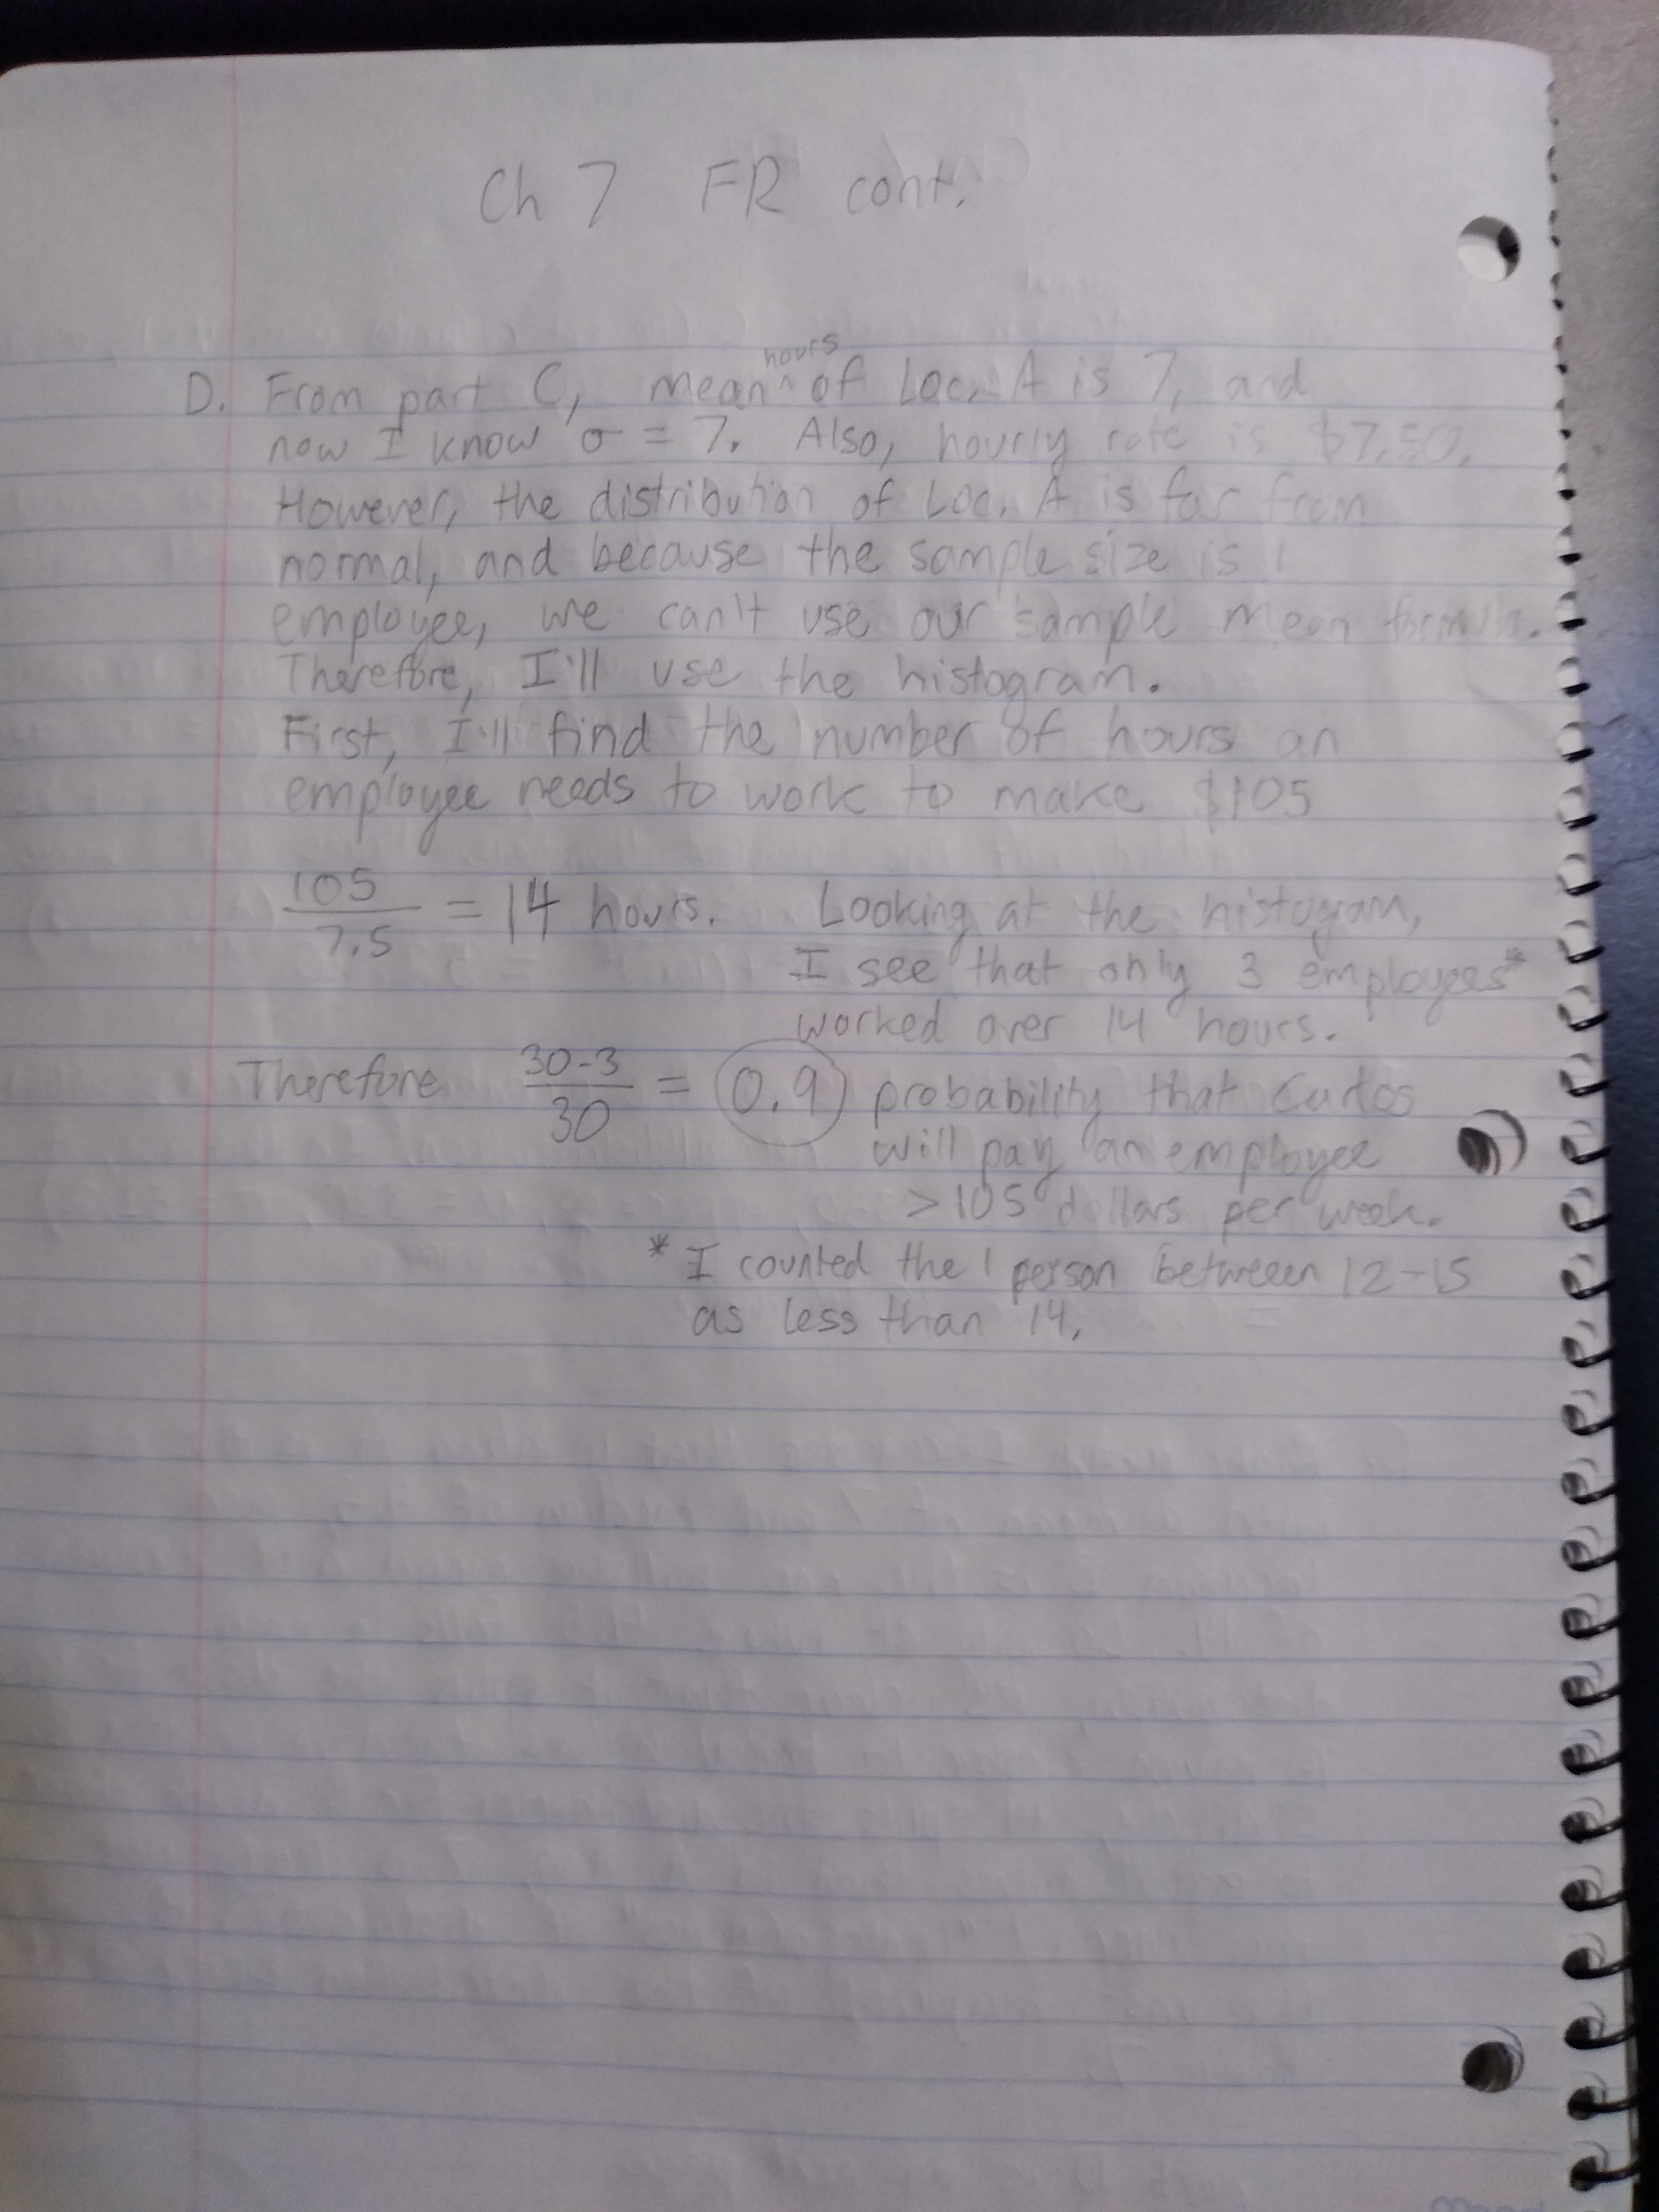 Ch 7 FR cont.
hours
D. From part C, mean ^ of Loc. A is 7, and
now I know σ = 7. Also, hourly rate is $7.50.
However, the distribution of Loc. A is far from
normal, and because the sample size is 1
employee, we can't use our sample mean formula.
Therefore, I'll use the histogram.
First, I'll find the number of hours an
employee needs to work to make $105
105/7.5 = 14 hours. Looking at the histogram,
I see that only 3 employees*
worked over 14 hours.
Therefore 30-3/30 = 0.9 probability that
will pay an employee
>105 dollars per week.
* I counted the 1 person between 12-15
as less than 14.